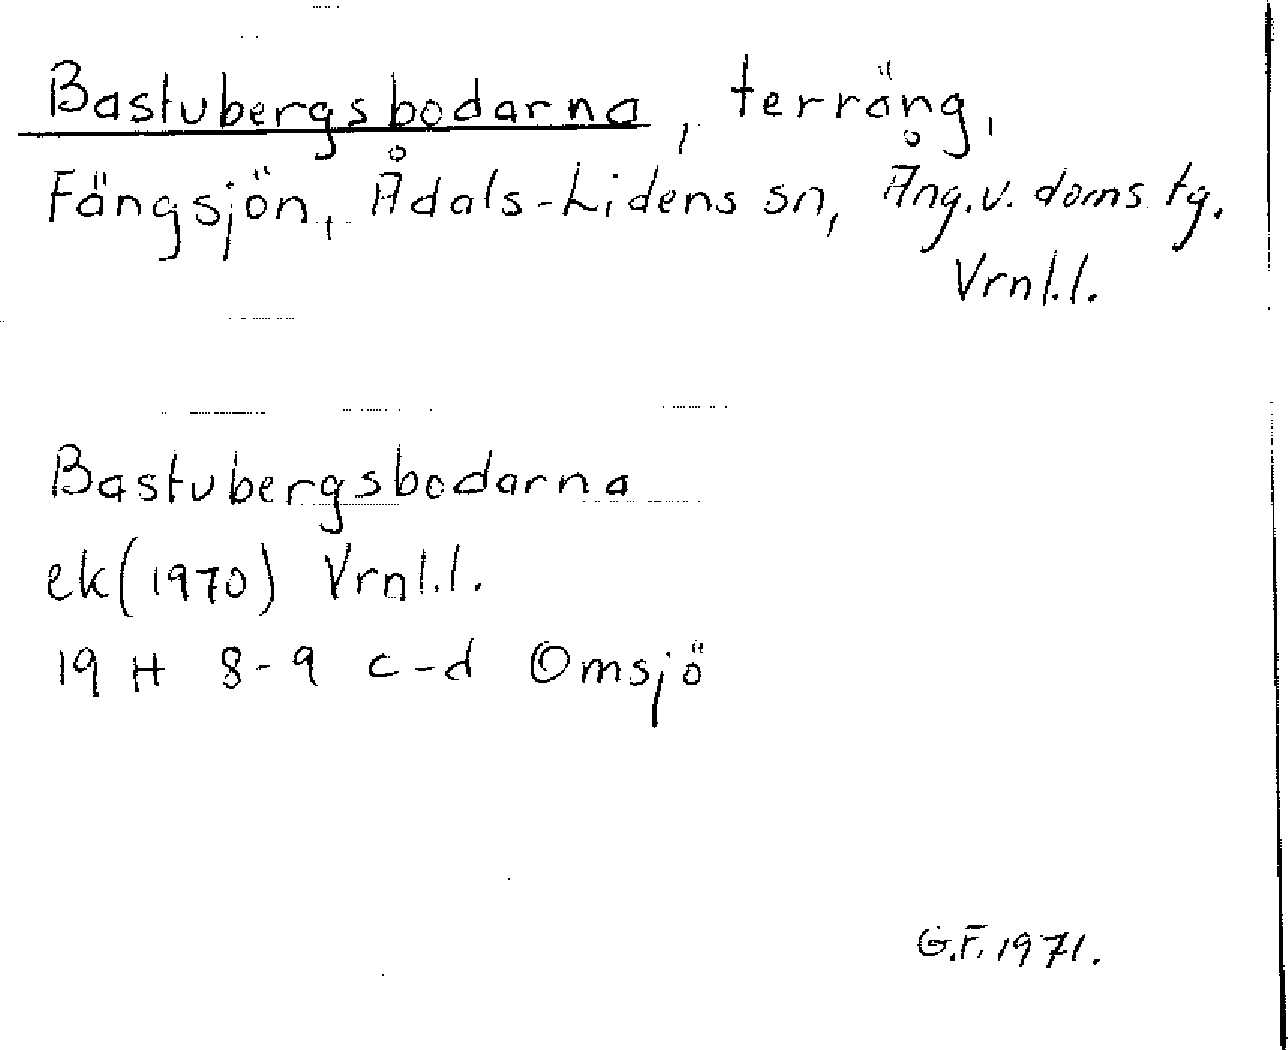 Bastubergsbodarna, terräng,
Fängsjön, Ådals-Lidens sn, Ång.v. doms tg.
Vrnl.l.
Bastubergsbodarna
ek(1970) Vrnl.l.
19 H 8-9 c-d Omsjö
G.F. 1971.